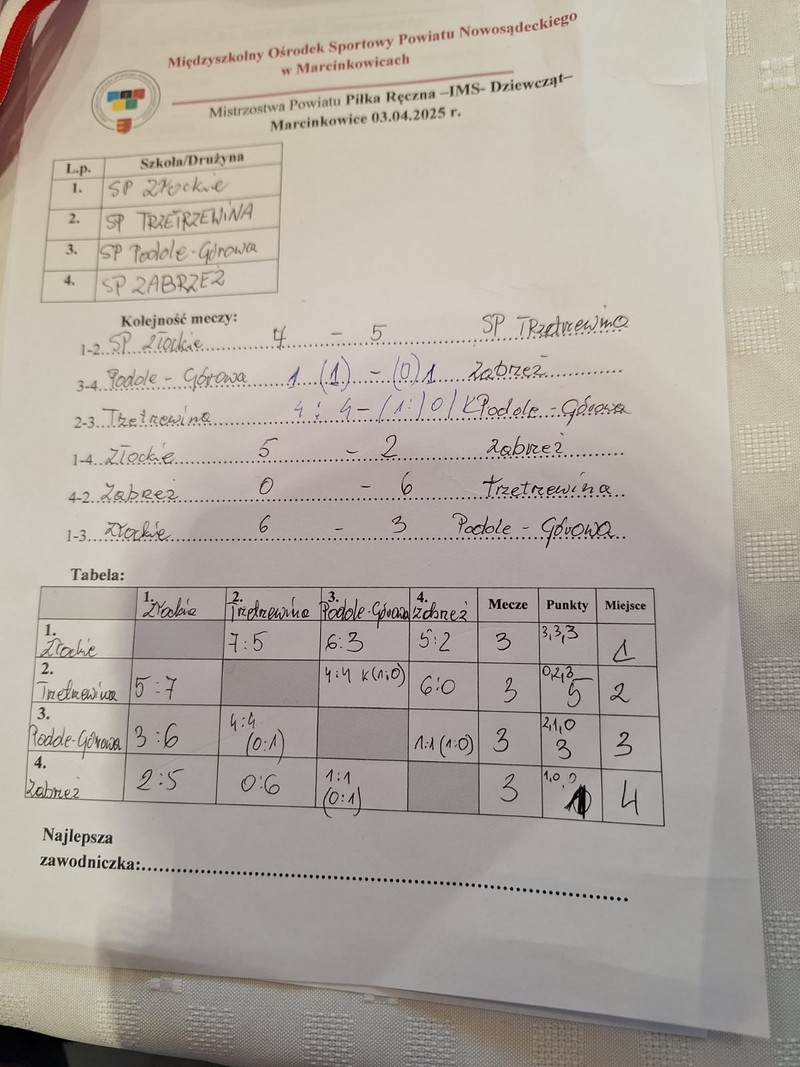 Międzyszkolny Ośrodek Sportowy Powiatu Nowosądeckiego
w Marcinkowicach
Mistrzostwa Powiatu Piłka Ręczna –IMS- Dziewcząt–
Marcinkowice 03.04.2025 r.
L.p. Szkoła/Drużyna
1. SP Złockie
2. SP TRZETRZEWINA
3. SP Podole-Górowa
4. SP ZABRZEŻ
Kolejność meczy:
1-2 SP Złockie 7 - 5 SP Trzetrzewina
3-4 Podole - Górowa 1 (1) - (0) 1 Zabrzeż
2-3 Trzetrzewina 4 : 4 - (1:0) K Podole - Górowa
1-4 Złockie 5 - 2 Zabrzeż
4-2 Zabrzeż 0 - 6 Trzetrzewina
1-3 Złockie 6 - 3 Podole - Górowa
Tabela:
1. Złockie 2. Trzetrzewina 3. Podole-Górowa 4. Zabrzeż Mecze Punkty Miejsce
1. Złockie 7:5 6:3 5:2 3 3,3,3 1
2. Trzetrzewina 5:7 4:4 K(1:0) 6:0 3 0,2,3 5 2
3. Podole-Górowa 3:6 4:4 (0:1) 1:1 (1:0) 3 2,1,0 3 3
4. Zabrzeż 2:5 0:6 1:1 (0:1) 3 1,0,0 1 4
Najlepsza
zawodniczka: